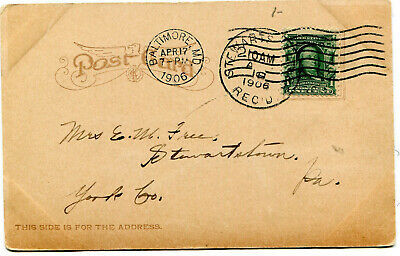 1-
Post Card
BALTIMORE, MD.
APR 17
7-PM
1906
STEWARTS
10 AM
1906
REC'D
Mrs E. M. Free.
Stewartstown,
York Co. Pa.
THIS SIDE IS FOR THE ADDRESS.